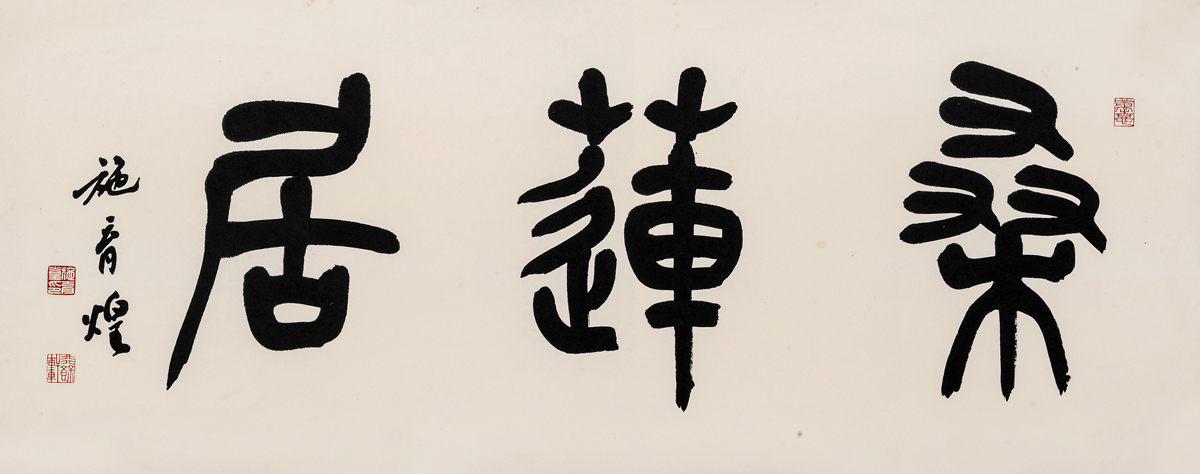 桑蓮居
施育煌